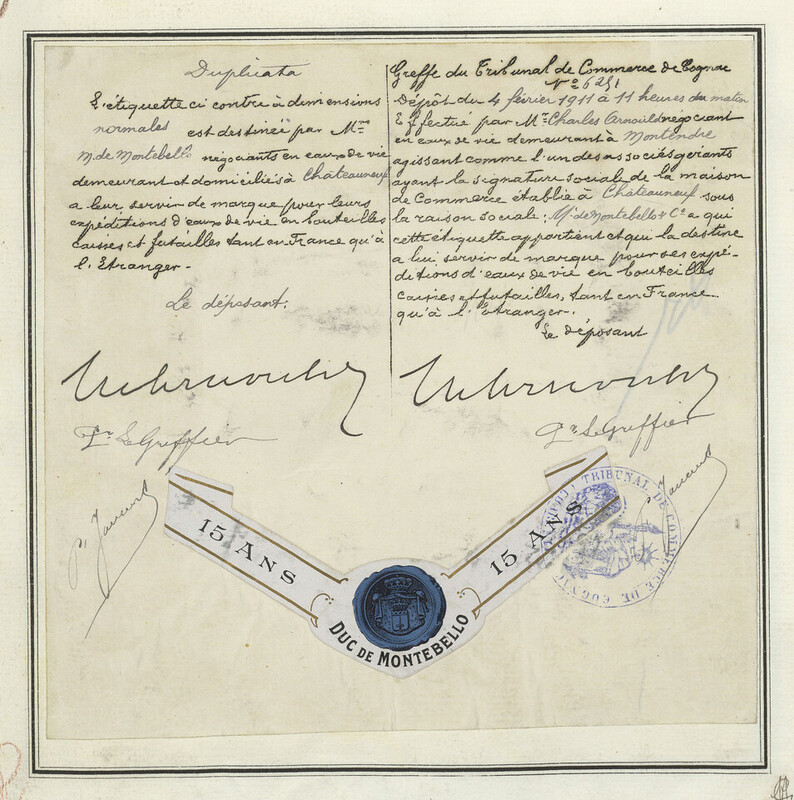 Duplicata
L'étiquette ci contre à dimensions
normales est destinée par Mm
M. de Montebello négociants en eaux de vie
demeurant et domiciliés à Châteauneuf
a leur servir de marque pour leurs
expéditions d'eaux de vie en bouteilles
caisses et futailles tant en France qu'à
l'Etranger -
Le déposant:
Pr Le Greffier
Greffe du Tribunal de Commerce de Cognac
Dépôt du 4 février 1911 à 11 heures du matin
Effectué par Mr Charles Arnould négociant
en eaux de vie demeurant à Montendre
agissant comme l'un des associés gérants
ayant la signature sociale de la maison
de Commerce établie à Châteauneuf sous
la raison sociale: M. de Montebello & Cie a qui
cette étiquette appartient et qui la destine
a lui servir de marque pour ses expé-
ditions d'eaux de vie en bouteilles
caisses et futailles, tant en France
qu'à l'Etranger.
Le déposant
Pr Le Greffier
15 ANS
15 ANS
DUC DE MONTEBELLO
TRIBUNAL DE COMMERCE DE COGNAC